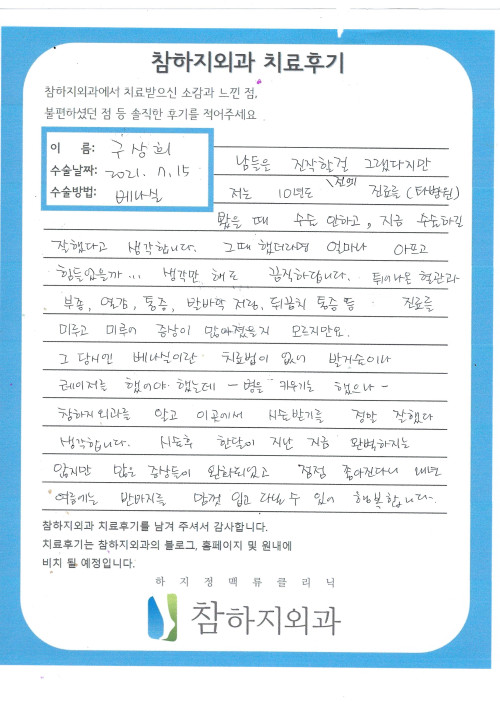 참하지외과 치료후기
참하지외과에서 치료받으신 소감과 느낀 점,
불편하셨던 점 등 솔직한 후기를 적어주세요
이 름: 구상희
수술날짜: 2021. 7. 15
수술방법: 베나실
남들은 진작할걸 그랬다지만
저는 10년도 전에 진료를 (타병원)
봤을 때 수술 안하고, 지금 수술하길
잘했다고 생각합니다. 그때 했더라면 얼마나 아프고
힘들었을까... 생각만 해도 끔찍하답니다. 튀어나온 혈관과
부종, 열감, 통증, 발바닥 저림, 뒤꿈치 통증 등 진료를
미루고 미루어 증상이 많아졌을지 모르지만요.
그 당시엔 베나실이란 치료법이 없어 발거술이나
레이저를 했어야 했는데 - 병을 키우기는 했으나 -
참하지외과를 알고 이곳에서 시술받기를 정말 잘했다
생각합니다. 시술후 한달이 지난 지금 완벽하지는
않지만 많은 증상들이 완화되었고 점점 좋아진다니 내년
여름에는 반바지를 맘껏 입고 다닐 수 있어 행복합니다.
참하지외과 치료후기를 남겨 주셔서 감사합니다.
치료후기는 참하지외과의 블로그, 홈페이지 및 원내에
비치 될 예정입니다.
하지정맥류클리닉
참하지외과